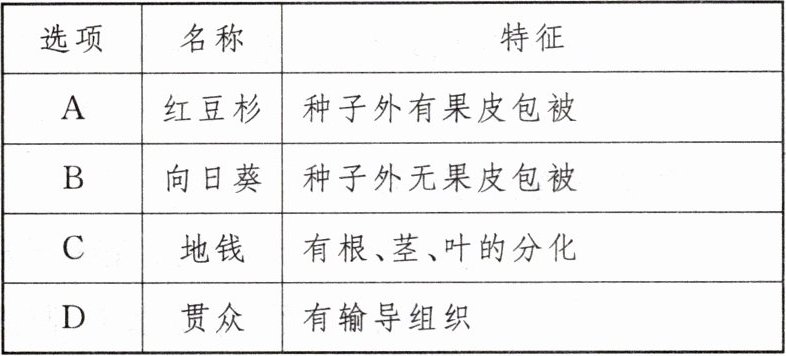 选项 名称 特征
A 红豆杉 种子外有果皮包被
B 向日葵 种子外无果皮包被
C 地钱 有根、茎、叶的分化
D 贯众 有输导组织